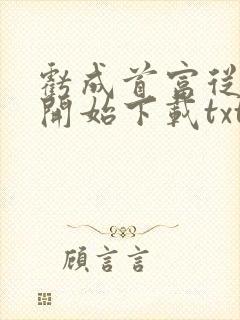 虧成首富從
開始下載txt
顧言言